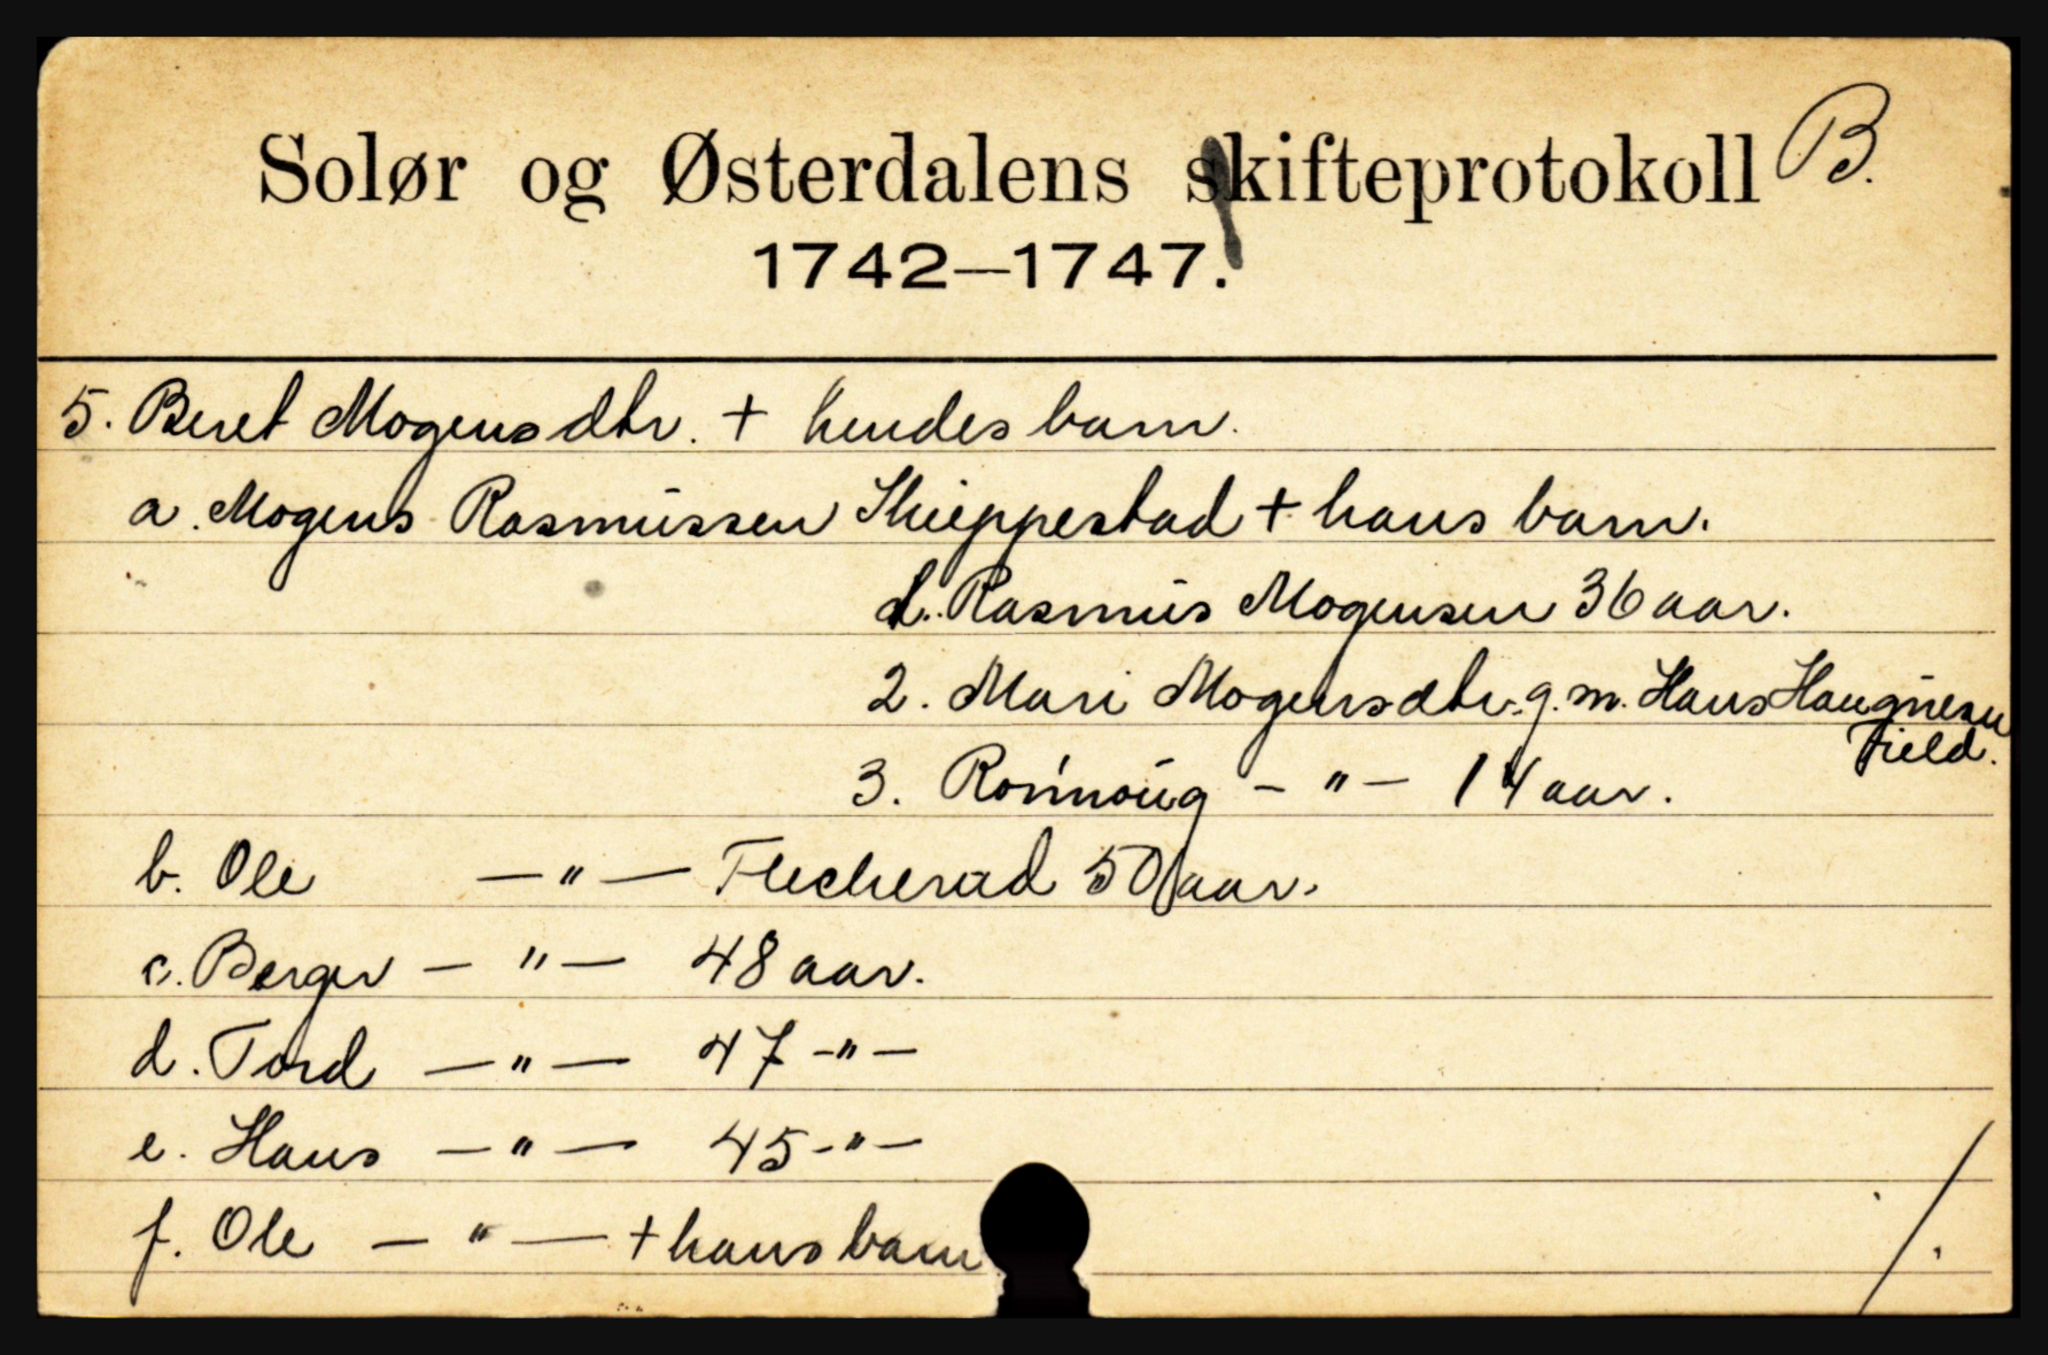 Solør og Østerdalens skifteprotokoll B.
1742—1747.
5. Beret Mogensdtr. + hendes barn.
a. Mogens Rasmussen Skieppestad + hans barn.
1. Rasmus Mogensen 36 aar.
2. Mari Mogensdtr. g. m. Hans Haugnesen
Field.
3. Ronnoug — " — 14 aar.
b. Ole — " — Flecherud 50 aar.
c. Berger — " — 48 aar.
d. Tord — " — 47 - " -
e. Hans — " — 45 - " -
f. Ole — " — + hans barn
/.